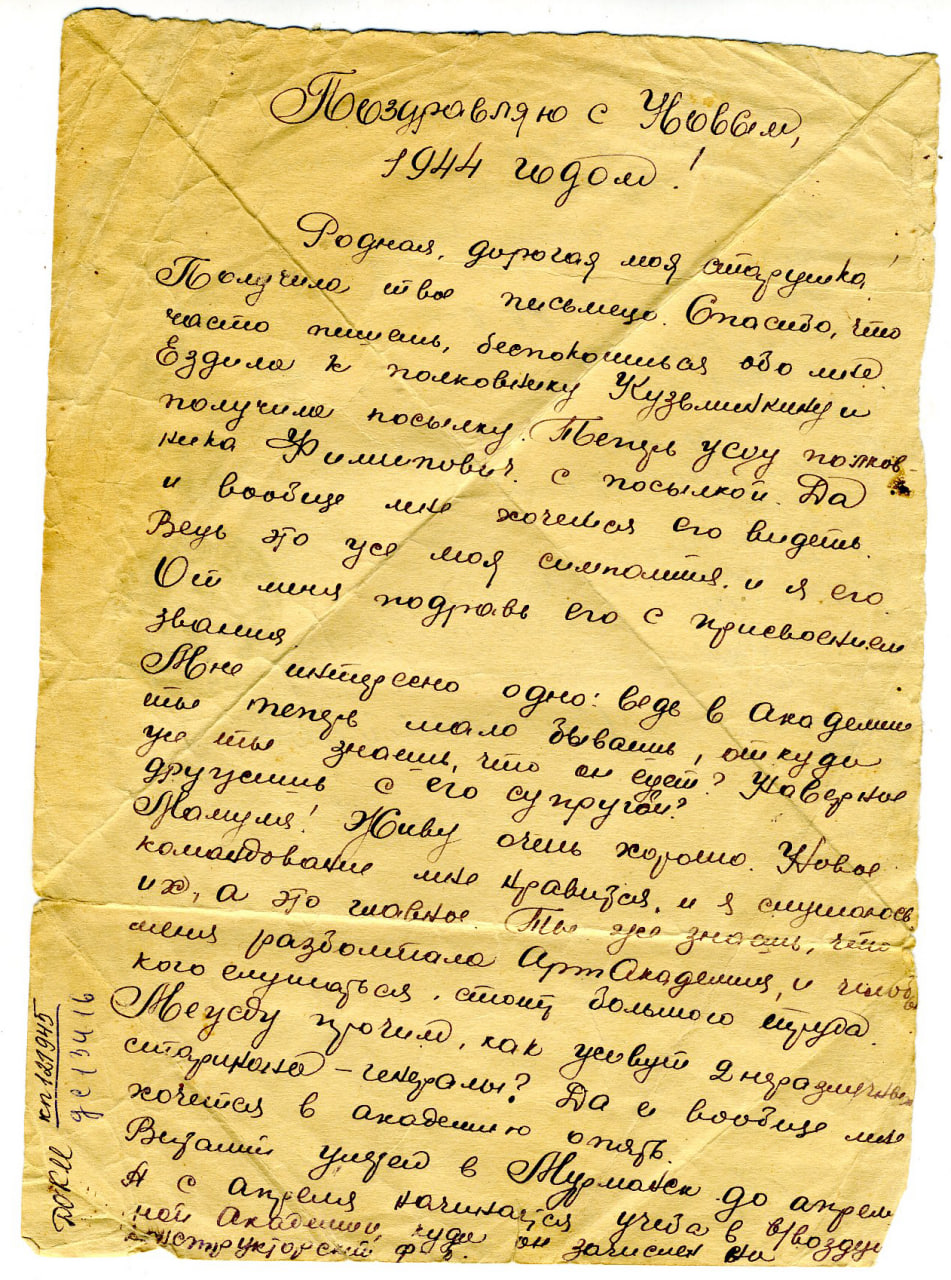 Поздравляю с Новым,
1944 годом!
Родная, дорогая моя старушка!
Получила твое письмецо. Спасибо, что
часто пишешь, беспокоишься обо мне.
Ездила к полковнику Кузьминкину и
получила посылку. Теперь жду полков-
ника Филипович. с посылкой. Да
и вообще мне хочется его видеть.
Ведь это же моя симпатия, и я его.
От меня подравь его с присвоением
звания.
Мне интересно одно: ведь в Академии
ты теперь мало бываешь, откуда
же ты знаешь, что он едет? Наверное
дружишь с его супругой?
Мамуля! Живу очень хорошо. Новое
командование мне нравится, и я слушаюсь
их, а это главное. Ты же знаешь, что
меня разболтала АртАкадемия, и чтобы
кого слушаться, стоит большого труда.
Между прочим, как живут 2 неразлучные
старикана – генералы? Да и вообще мне
хочется в академию опять.
Виталий уехал в Мурманск до апреля
А с апреля начинается учеба в в/воздуш
ной Академии, куда он зачислен на
структорский ф-т.
ДОКМ кп121945
дс13416